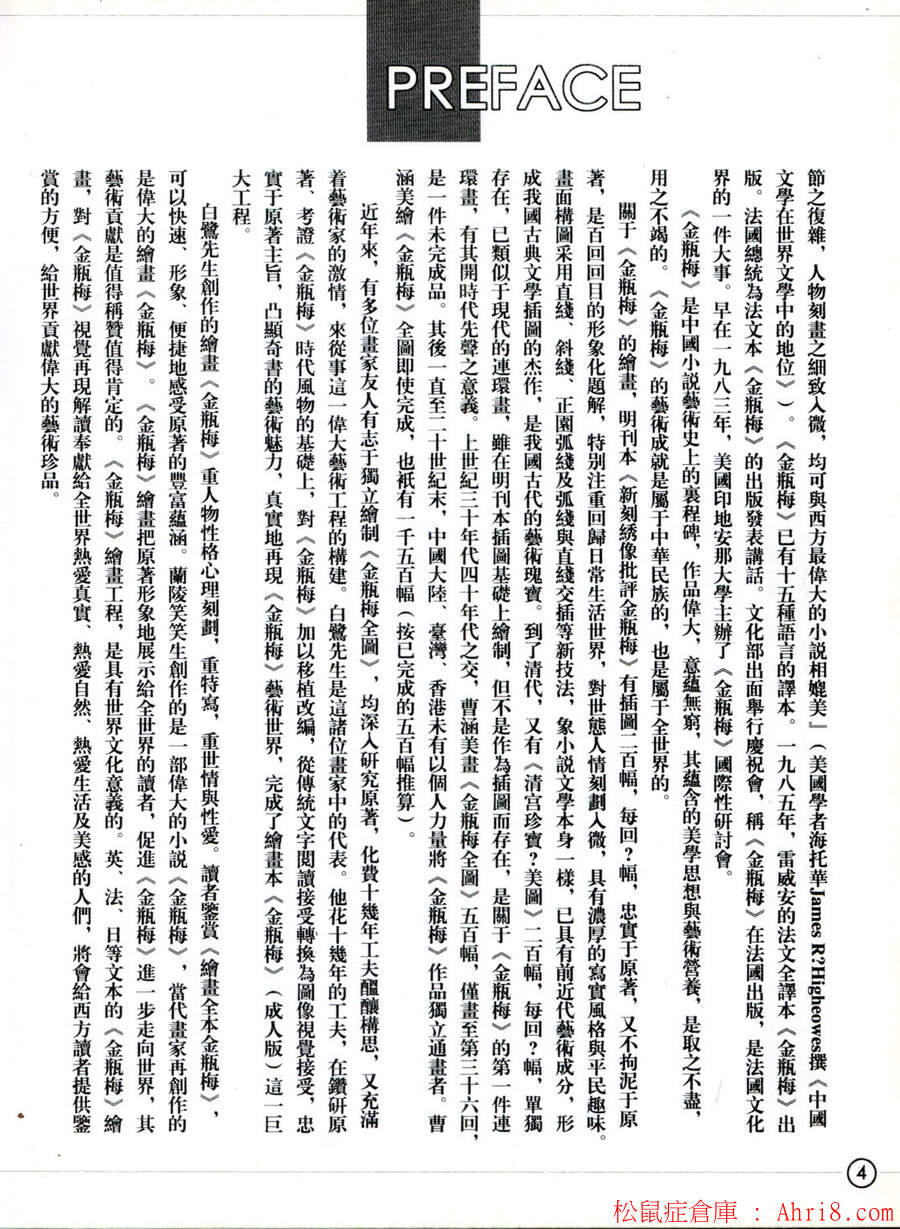 PREFACE
節之復雜，人物刻畫之細致入微，均可與西方最偉大的小説相媲美』（美國學者海托華James R?Higheowes撰《中國
文學在世界文學中的地位》）。《金瓶梅》已有十五種語言的譯本。一九八五年，雷威安的法文全譯本《金瓶梅》出
版。法國總統為法文本《金瓶梅》的出版發表講話。文化部出面舉行慶祝會，稱《金瓶梅》在法國出版，是法國文化
界的一件大事。早在一九八三年，美國印地安那大學主辦了《金瓶梅》國際性研討會。
《金瓶梅》是中國小説藝術史上的裏程碑，作品偉大，意蘊無窮，其蘊含的美學思想與藝術營養，是取之不盡，
用之不竭的。《金瓶梅》的藝術成就是屬于中華民族的，也是屬于全世界的。
關于《金瓶梅》的繪畫，明刊本《新刻綉像批評金瓶梅》有插圖二百幅，每回?幅，忠實于原著，又不拘泥于原
著，是百回回目的形象化題解，特別注重回歸日常生活世界，對世態人情刻劃入微，具有濃厚的寫實風格與平民趣味。
畫面構圖采用直綫、斜綫、正圓弧綫及弧綫與直綫交插等新技法，象小説文學本身一樣，已具有前近代藝術成分，形
成我國古典文學插圖的杰作，是我國古代的藝術瑰寶。到了清代，又有《清宫珍寶?美圖》二百幅，每回?幅，單獨
存在，已類似于現代的連環畫，雖在明刊本插圖基礎上繪制，但不是作為插圖而存在，是關于《金瓶梅》的第一件連
環畫，有其開時代先聲之意義。上世紀三十年代四十年代之交，曹涵美畫《金瓶梅全圖》五百幅，僅畫至第三十六回，
是一件未完成品。其後一直至二十世紀末，中國大陸、臺灣、香港未有以個人力量將《金瓶梅》作品獨立通畫者。曹
涵美繪《金瓶梅》全圖即使完成，也衹有一千五百幅（按已完成的五百幅推算）。
近年來，有多位畫家友人有志于獨立繪制《金瓶梅全圖》，均深入研究原著，化費十幾年工夫醖釀構思，又充滿
着藝術家的激情，來從事這一偉大藝術工程的構建。白鷺先生是這諸位畫家中的代表。他花十幾年的工夫，在鑽研原
著、考證《金瓶梅》時代風物的基礎上，對《金瓶梅》加以移植改編，從傳統文字閲讀接受轉換為圖像視覺接受，忠
實于原著主旨，凸顯奇書的藝術魅力，真實地再現《金瓶梅》藝術世界，完成了繪畫本《金瓶梅》（成人版）這一巨
大工程。
白鷺先生創作的繪畫《金瓶梅》重人物性格心理刻劃，重特寫，重世情與性愛。讀者鑒賞《繪畫全本金瓶梅》，
可以快速、形象、便捷地感受原著的豐富蘊涵。蘭陵笑笑生創作的是一部偉大的小説《金瓶梅》，當代畫家再創作的
是偉大的繪畫《金瓶梅》。《金瓶梅》繪畫把原著形象地展示給全世界的讀者，促進《金瓶梅》進一步走向世界，其
藝術貢獻是值得稱贊值得肯定的。《金瓶梅》繪畫工程，是具有世界文化意義的。英、法、日等文本的《金瓶梅》繪
畫，對《金瓶梅》視覺再現解讀奉獻給全世界熱愛真實、熱愛自然、熱愛生活及美感的人們，將會給西方讀者提供鑒
賞的方便，給世界貢獻偉大的藝術珍品。
4
松鼠症倉庫 : Ahri8.com